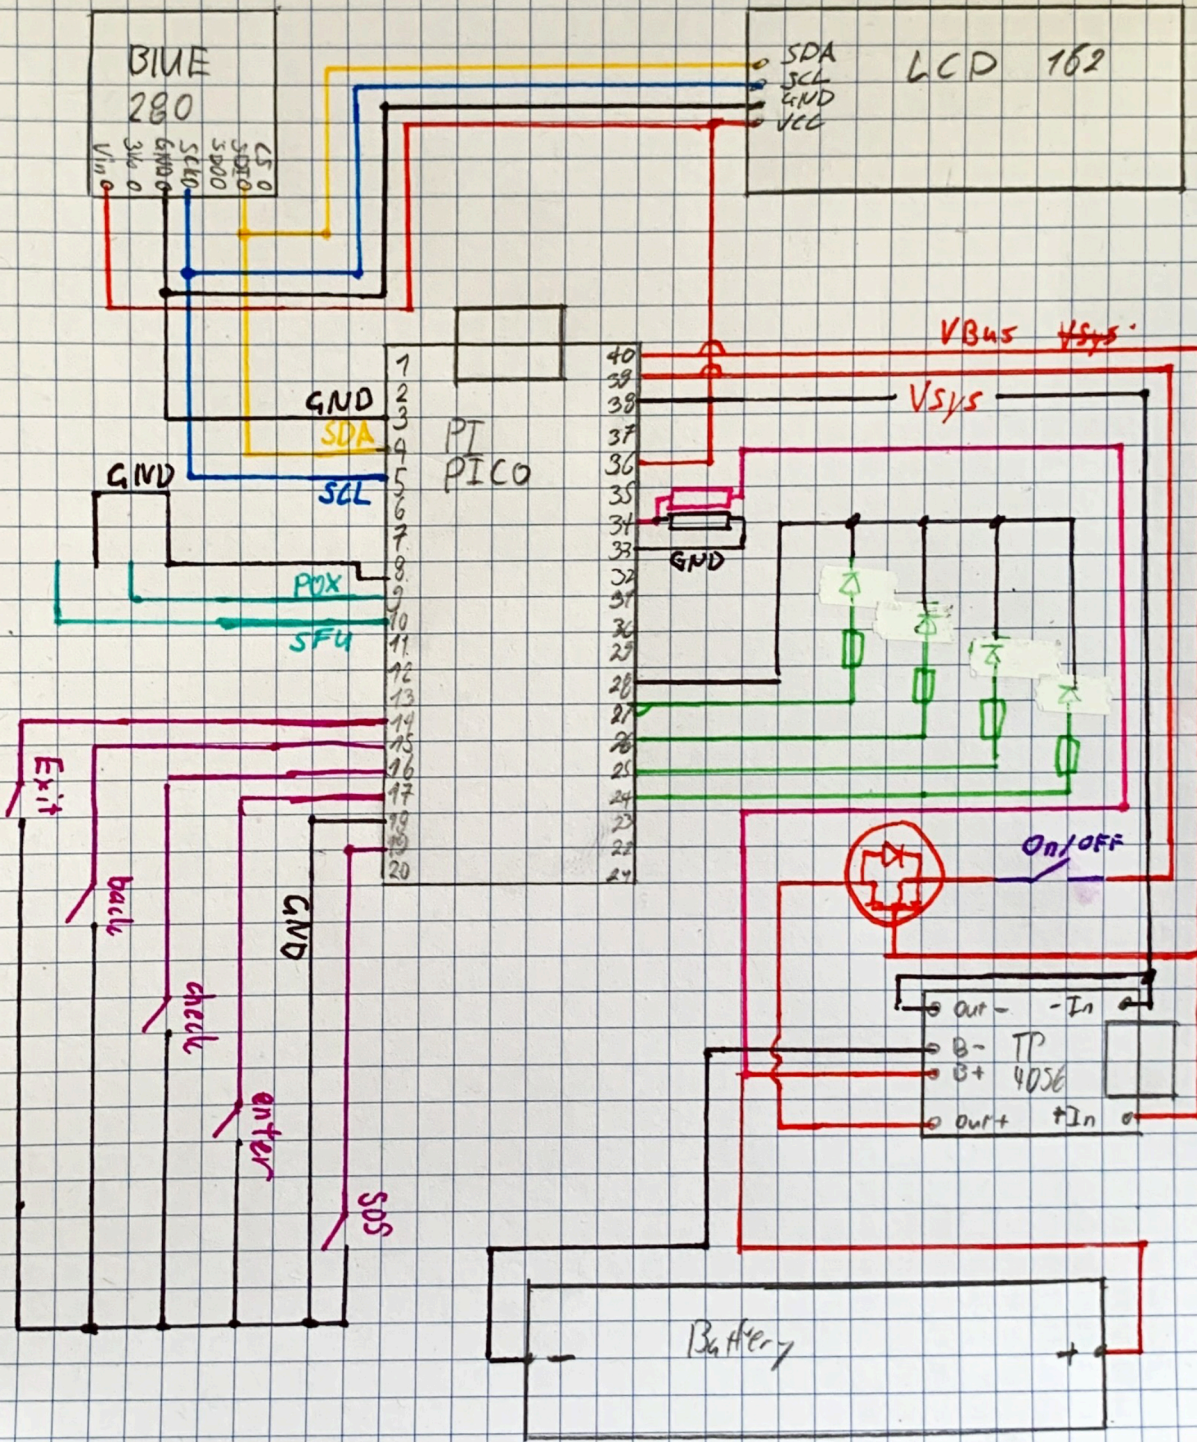 BME
280
Vin
3Vo
GND
SCK
SDO
SDI
CS
SDA
SCL
GND
VCC
LCD 162
VBus Vsys
Vsys
GND
SDA
SCL
PI
PICO
1
2
3
4
5
6
7
8
9
10
11
12
13
14
15
16
17
18
19
20
40
39
38
37
36
35
34
33
32
31
30
29
28
27
26
25
24
23
22
21
GND
POX
SFU
GND
Exit
back
check
enter
GND
SOS
On/OFF
Out -
- In
B-
B+
TP
4056
Out+
+In
Battery
-
+